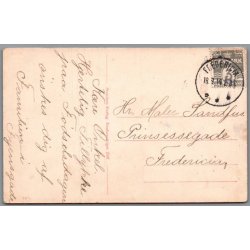 Kære Onkel.
Hjertelig Til Lykke
paa Fødselsdagen
ønskes dig af
Familien i
Hr. Maler Sandfus
Prinsessegade
Fredericia